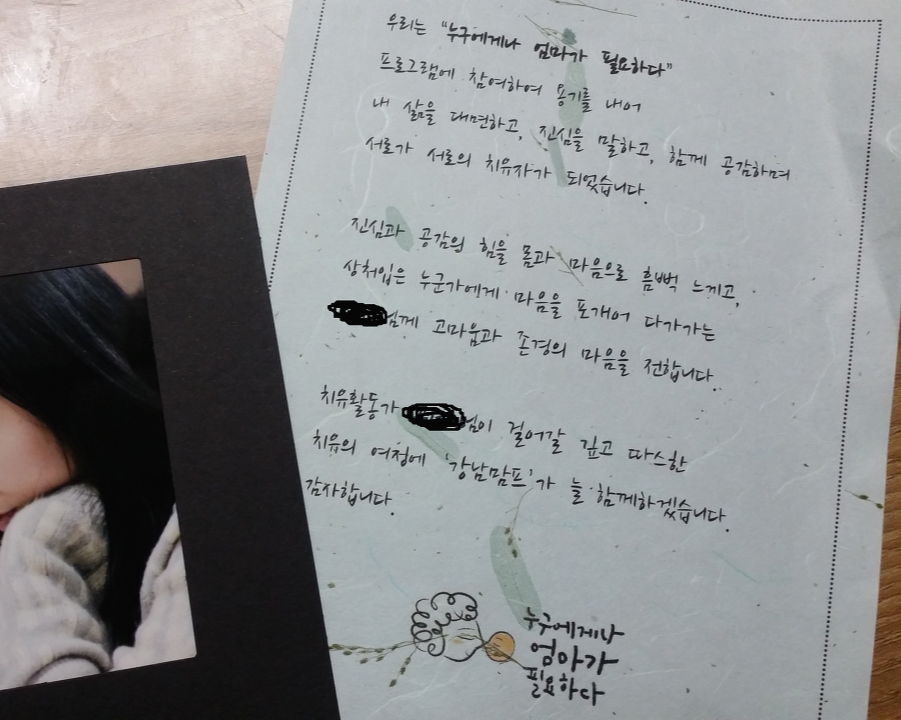 우리는 "누구에게나 엄마가 필요하다"
프로그램에 참여하여 용기를 내어
내 삶을 대면하고, 진심을 말하고, 함께 공감하며
서로가 서로의 치유자가 되었습니다.
진심과 공감의 힘을 몸과 마음으로 흠뻑 느끼고,
상처입은 누군가에게 마음을 포개어 다가가는
님께 고마움과 존경의 마음을 전합니다.
치유활동가 님이 걸어갈 깊고 따스한
치유의 여정에 '강남맘프'가 늘 함께하겠습니다.
감사합니다.
누구에게나
엄마가
필요하다